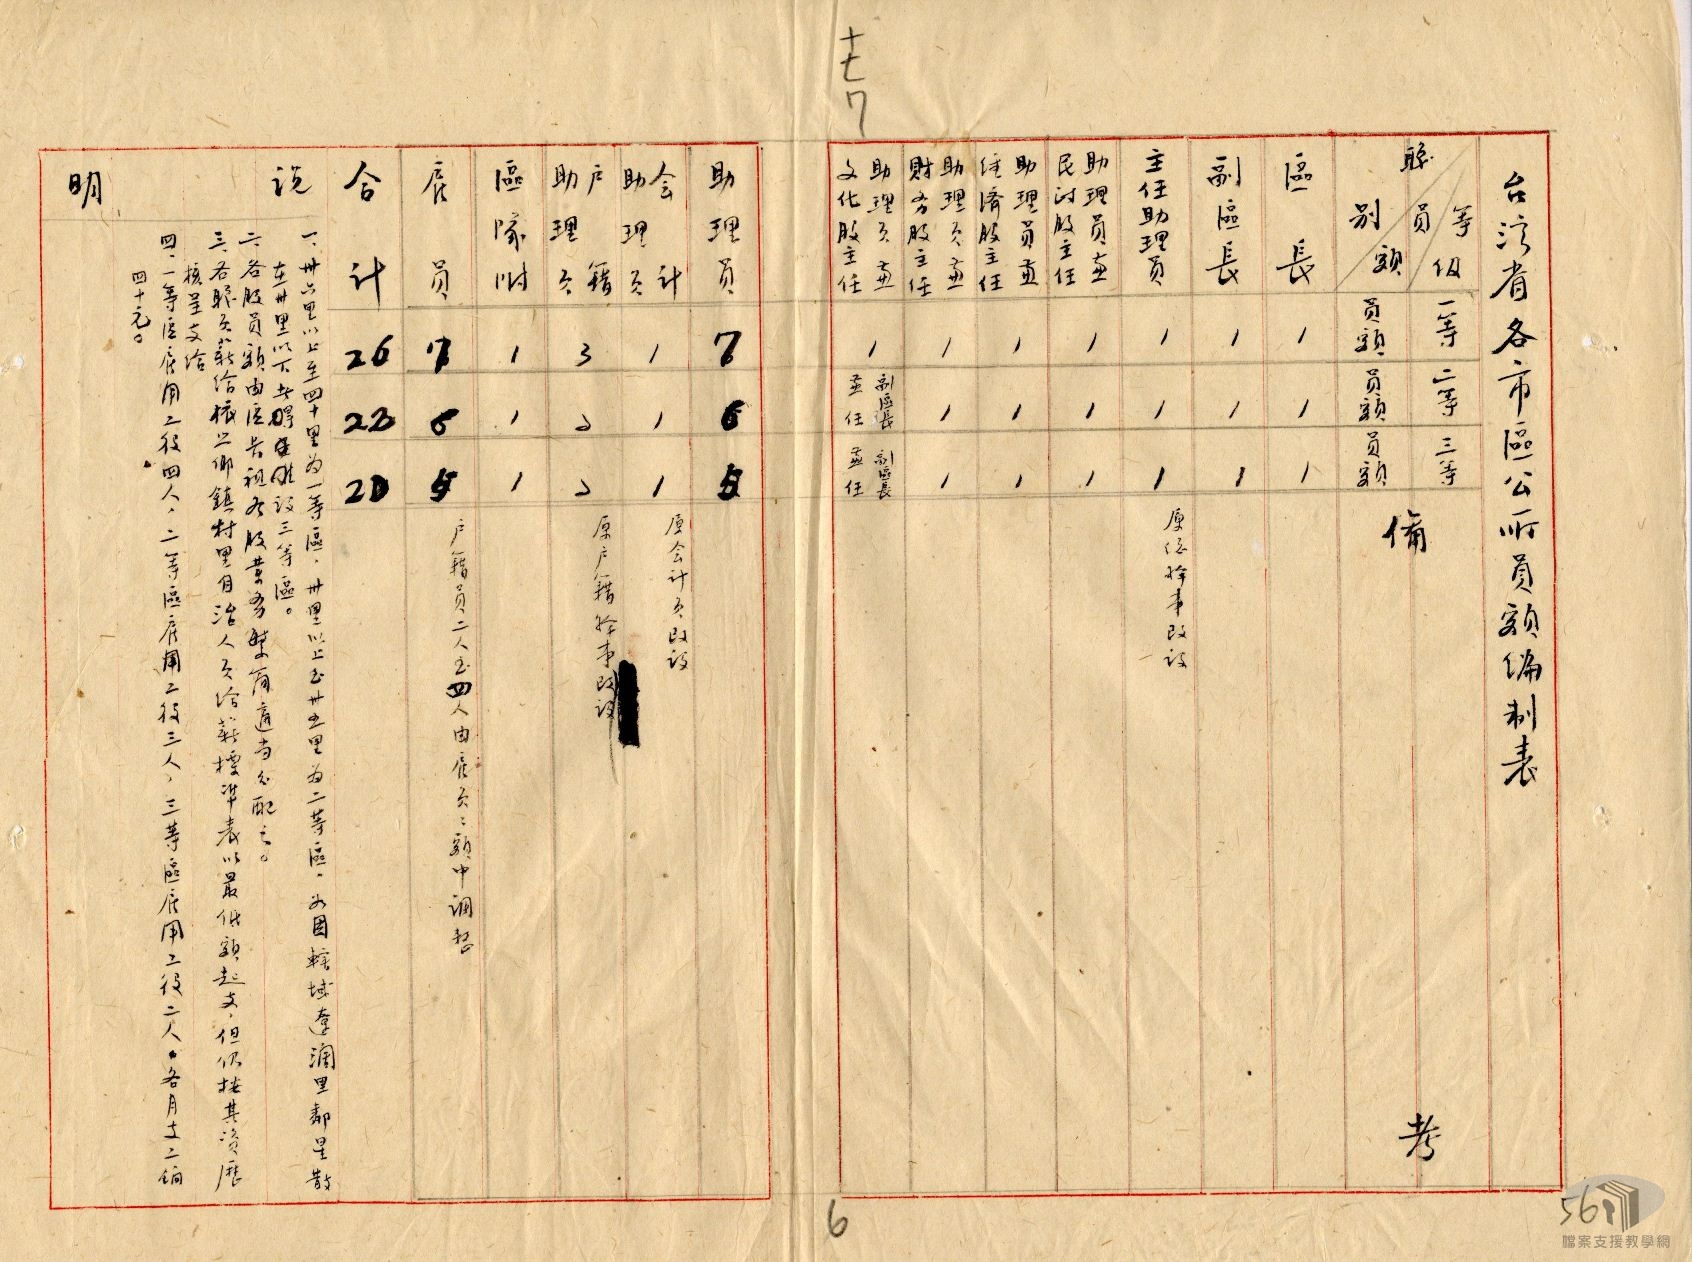 台湾省各市區公所員額編制表
職別 員額 等級
一等 員額
二等 員額
三等 員額
備 考
區長 1 1 1
副區長 1 1 1
主任助理員 1 1 1 原任幹事改設
助理員兼民政股主任 1 1 1
助理員兼经濟股主任 1 1 1
助理员兼財务股主任 1 1 1
助理员兼文化股主任 1 副區長兼任 副區長兼任
助理員 7 6 5
会计助理员 1 1 1 原会计员改設
户籍助理员 3 2 2 原户籍幹事改設
區隊附 1 1 1
雇員 7 6 5 户籍員二人至四人由雇员名額中調整
合计 26 23 20
说明
一、卅六里以上至四十里为一等區，卅里以上至卅五里为二等區，如因轄域遼濶里鄰星散
在卅里以下者得設三等區。
二、各股員額由區長視各股業务繁简適当分配之。
三、各职员薪给依照鄉鎮村里自治人员给薪標準表以最低額起支，但仍按其資歷
核呈支给
四、一等區雇用工役四人，二等區雇用工役三人，三等區雇用工役二人。各月支工餉
四十元。
七
7
6
56
檔案支援教學網